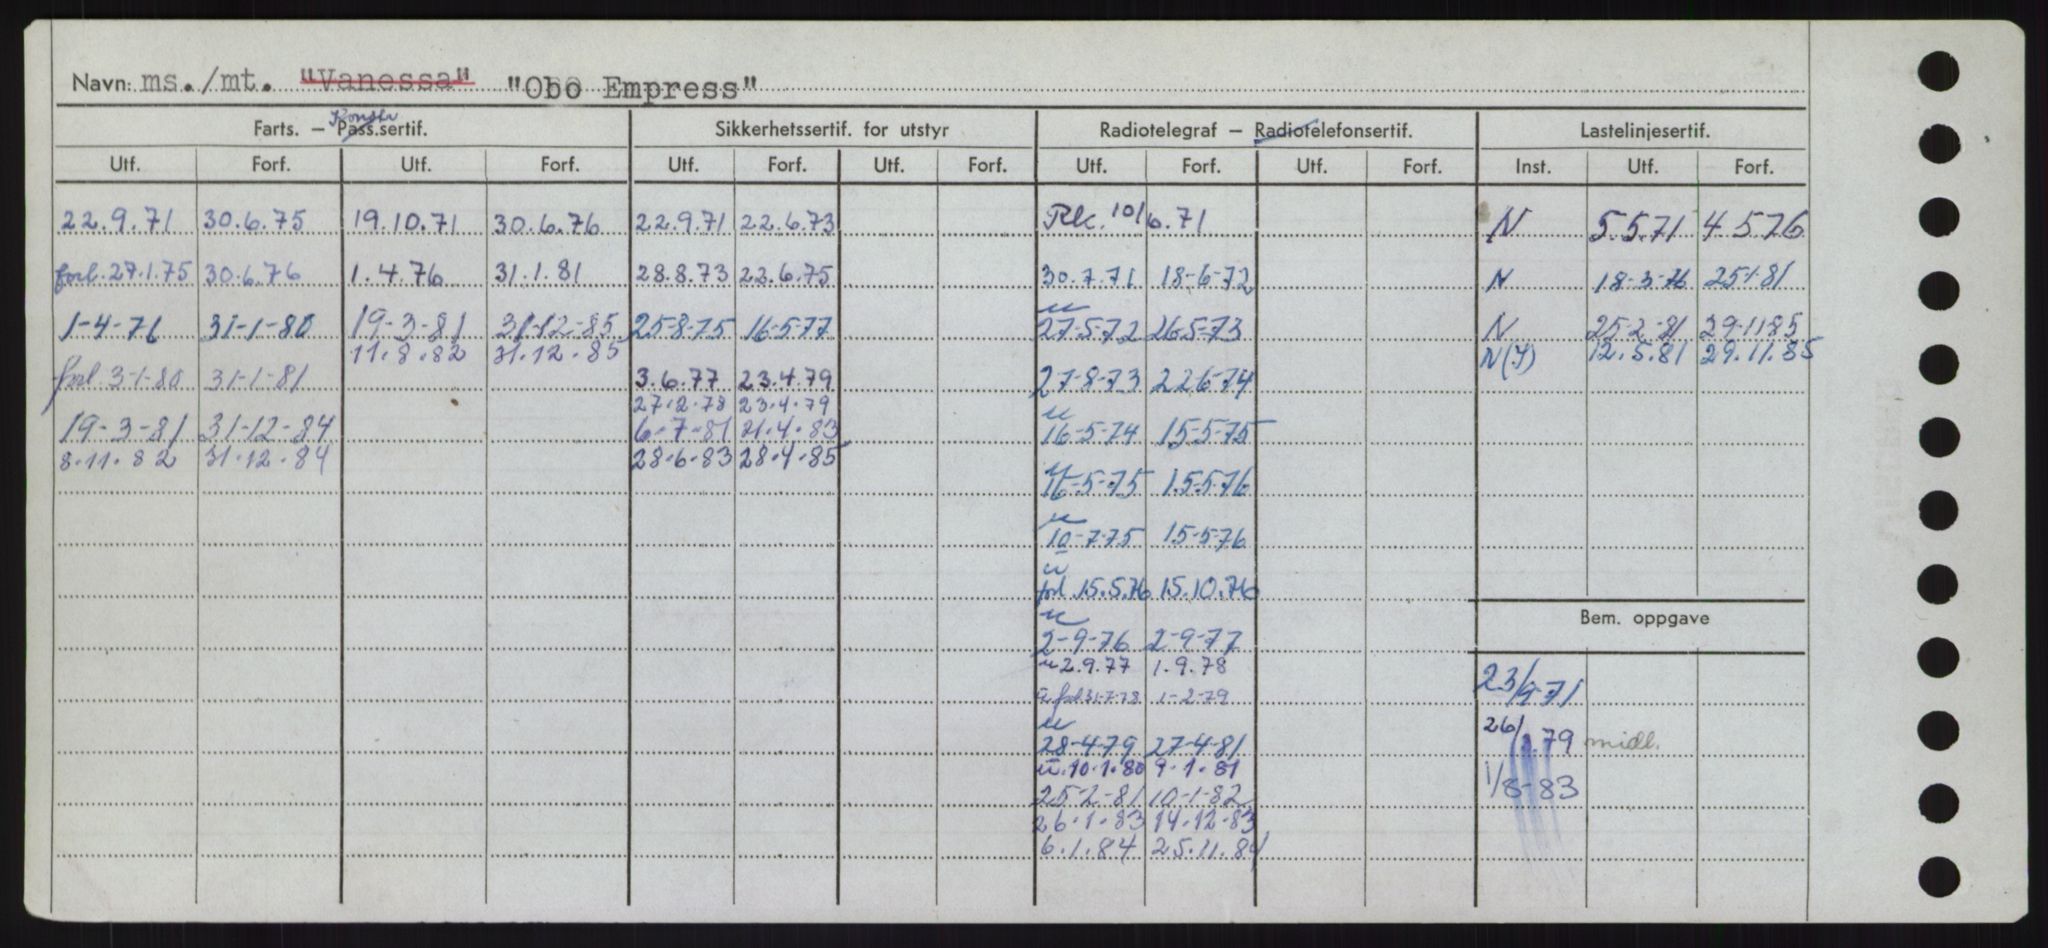 Navn: ms./mt. "Vanessa" "Obo Empress"
Farts. – Pass.sertif. Konstr Sikkerhetssertif. for utstyr Radiotelegraf – Radiotelefonsertif. Lastelinjesertif.
Utf. Forf. Utf. Forf. Utf. Forf. Utf. Forf. Utf. Forf. Utf. Forf. Inst. Utf. Forf.
22.9.71 30.6.75 19.10.71 30.6.76 22.9.71 22.6.73 10/6.71 N 5.5.71 4.5.76
forl. 27.1.75 30.6.76 1.4.76 31.1.81 28.8.73 22.6.75 30.7.71 18-6-72 N 18-3-76 25-1-81
1-4-76 31-1-80 19-3-81 31-12-85 25-8-75 16-5-77 27-5-72 26-5-73 N 25-2-81 29-11-85
11.8.82 31.12.85 N(I) 12.5.81 29.11.85
forl. 31-1-80 31-1-81 3.6.77 23.4.79 27-8-73 22-6-74
27.2.78 23.4.79
19-3-81 31-12-84 6.7.81 21.4.83 16-5-74 15-5-75
8.11.82 31.12.84 28.6.83 28.4.85
16-5-75 15-5-76
10-7-75 15-5-76
forl. 15.5.76 15.10.76
Bem. oppgave
2-9-76 2-9-77
2.9.77 1.9.78
forl 31-7-78 1-2-79 23/9-71
28-4-79 27-4-81 26/3.79 midl.
10.1.80 9.1.81
25-2-81 10-1-82 1/8-83
26.1.83 14.12.83
6.1.84 25.11.84